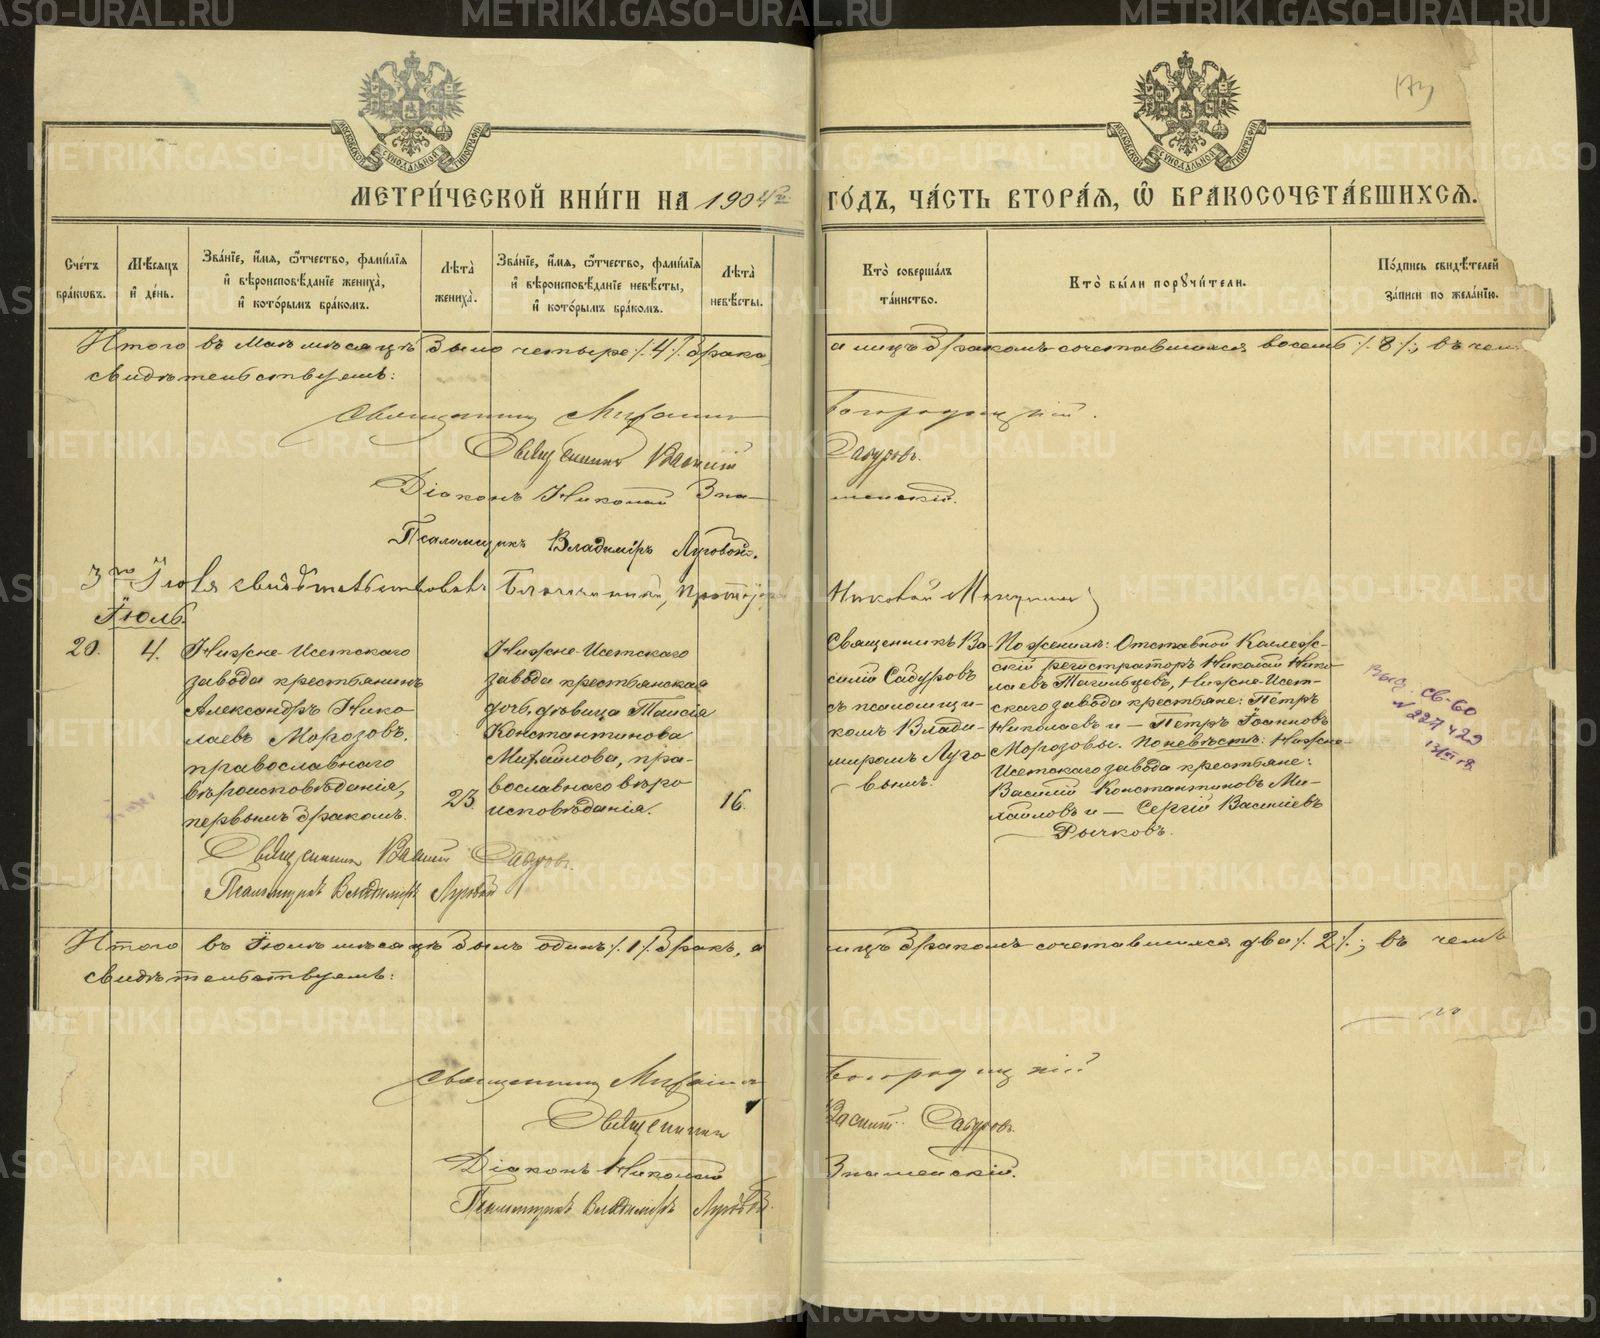 173
МОСКОВСКОЙ СѴНОДАЛЬНОЙ ТИПОГРАФІИ
МОСКОВСКОЙ СѴНОДАЛЬНОЙ ТИПОГРАФІИ
МЕТРИ́ЧЕСКОЙ КНИ́ГИ НА 1904й ГО́ДЪ, ЧА́СТЬ ВТОРА́Я, Ѽ БРАКОСОЧЕТА́ВШИХСЯ.
Сче́тъ бра́кѡвъ.
Мѣ́сяцъ и҆ де́нь.
Зва́нїе, и҆́мя, ѻ҆́тчество, фами́лїя и҆ вѣроисповѣ́данїе жениха̀, и҆ кото́рымъ бра́комъ.
Лѣ́та жениха̀.
Зва́нїе, и҆́мя, ѻ҆́тчество, фами́лїя и҆ вѣроисповѣ́данїе невѣ́сты, и҆ кото́рымъ бра́комъ.
Лѣ́та невѣ́сты.
Кто̀ соверша́лъ та́инство.
Кто̀ бы́ли поручи́тели.
По́дпись свидѣ́телей за́писи по жела́нїю.
Итого въ маѣ мѣсяцѣ было четыре /.4/. брака, а лицъ бракомъ сочетавшихся восемь /.8/.; въ чемъ
свидѣтельствуемъ:
Священникъ Михаилъ Богородицкій.
Священникъ Василій Сабуровъ.
Діаконъ Николай Знаменскій.
Псаломщикъ Владиміръ Луговой.
3го Іюля свидѣтельствовалъ Благочинный, Протоіерей Николай
Іюль.
20.
4.
Нижне-Исетскаго
завода крестьянинъ
Александръ Нико
лаевъ Морозовъ,
православнаго
вѣроисповѣданія,
первымъ бракомъ.
23.
Нижне-Исетскаго
завода крестьянская
дочь, дѣвица Таисія
Константинова
Михайлова, пра-
вославнаго вѣро
исповѣданія.
16.
Священникъ Ва-
силій Сабуровъ
съ псаломщи-
комъ Влади-
миромъ Луго
вымъ.
По женихѣ: Отставной Коллеж-
скій регистраторъ Николай Нико-
лаевъ Тагильцевъ, Нижне-Исет-
скаго завода крестьяне: Петръ
Николаевъ и – Петръ Іоанновъ
Морозовы. По невѣстѣ: Нижне-
Исетскаго завода крестьяне:
Василій Константиновъ Ми-
хайловъ и – Сергій Василіевъ
Рычковъ.
Выд. св-во
№ 227429
Священникъ Василій Сабуровъ.
Псаломщикъ Владиміръ Луговой
Итого въ Іюлѣ мѣсяцѣ былъ одинъ /.1/. бракъ, а лицъ бракомъ сочетавшихся два /.2/.; въ чемъ
свидѣтельствуемъ:
Священникъ Михаилъ Богородицкій
Священникъ Василій Сабуровъ.
Діаконъ Николай Знаменскій.
Псаломщикъ Владиміръ Луговой.
METRIKI.GASO-URAL.RU